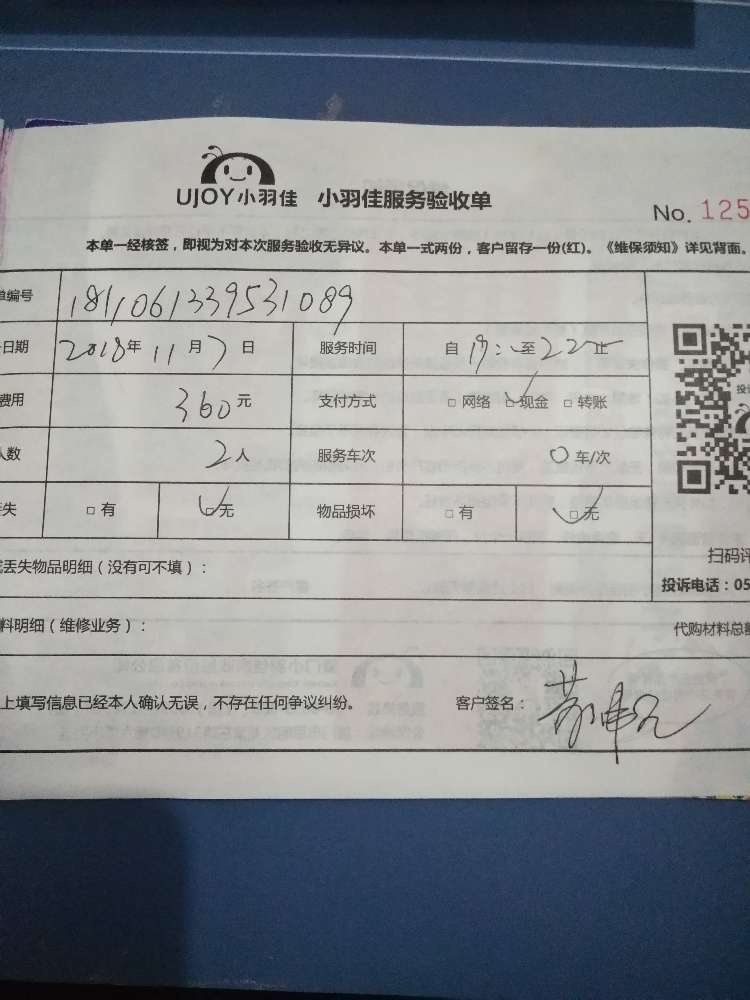 UJOY小羽佳 小羽佳服务验收单
No. 125
本单一经核签，即视为对本次服务验收无异议。本单一式两份，客户留存一份(红)。《维保须知》详见背面。
单编号 1811061339531089
日期 2018年11月7日 服务时间 自 至22止
费用 360元 支付方式 □ 网络 □ 现金 □ 转账
人数 2人 服务车次 0车/次
失 □ 有 □ 无 物品损坏 □ 有 □ 无
扫码评
丢失物品明细（没有可不填）：
投诉电话：05
料明细（维修业务）：
代购材料总额
上填写信息已经本人确认无误，不存在任何争议纠纷。 客户签名：